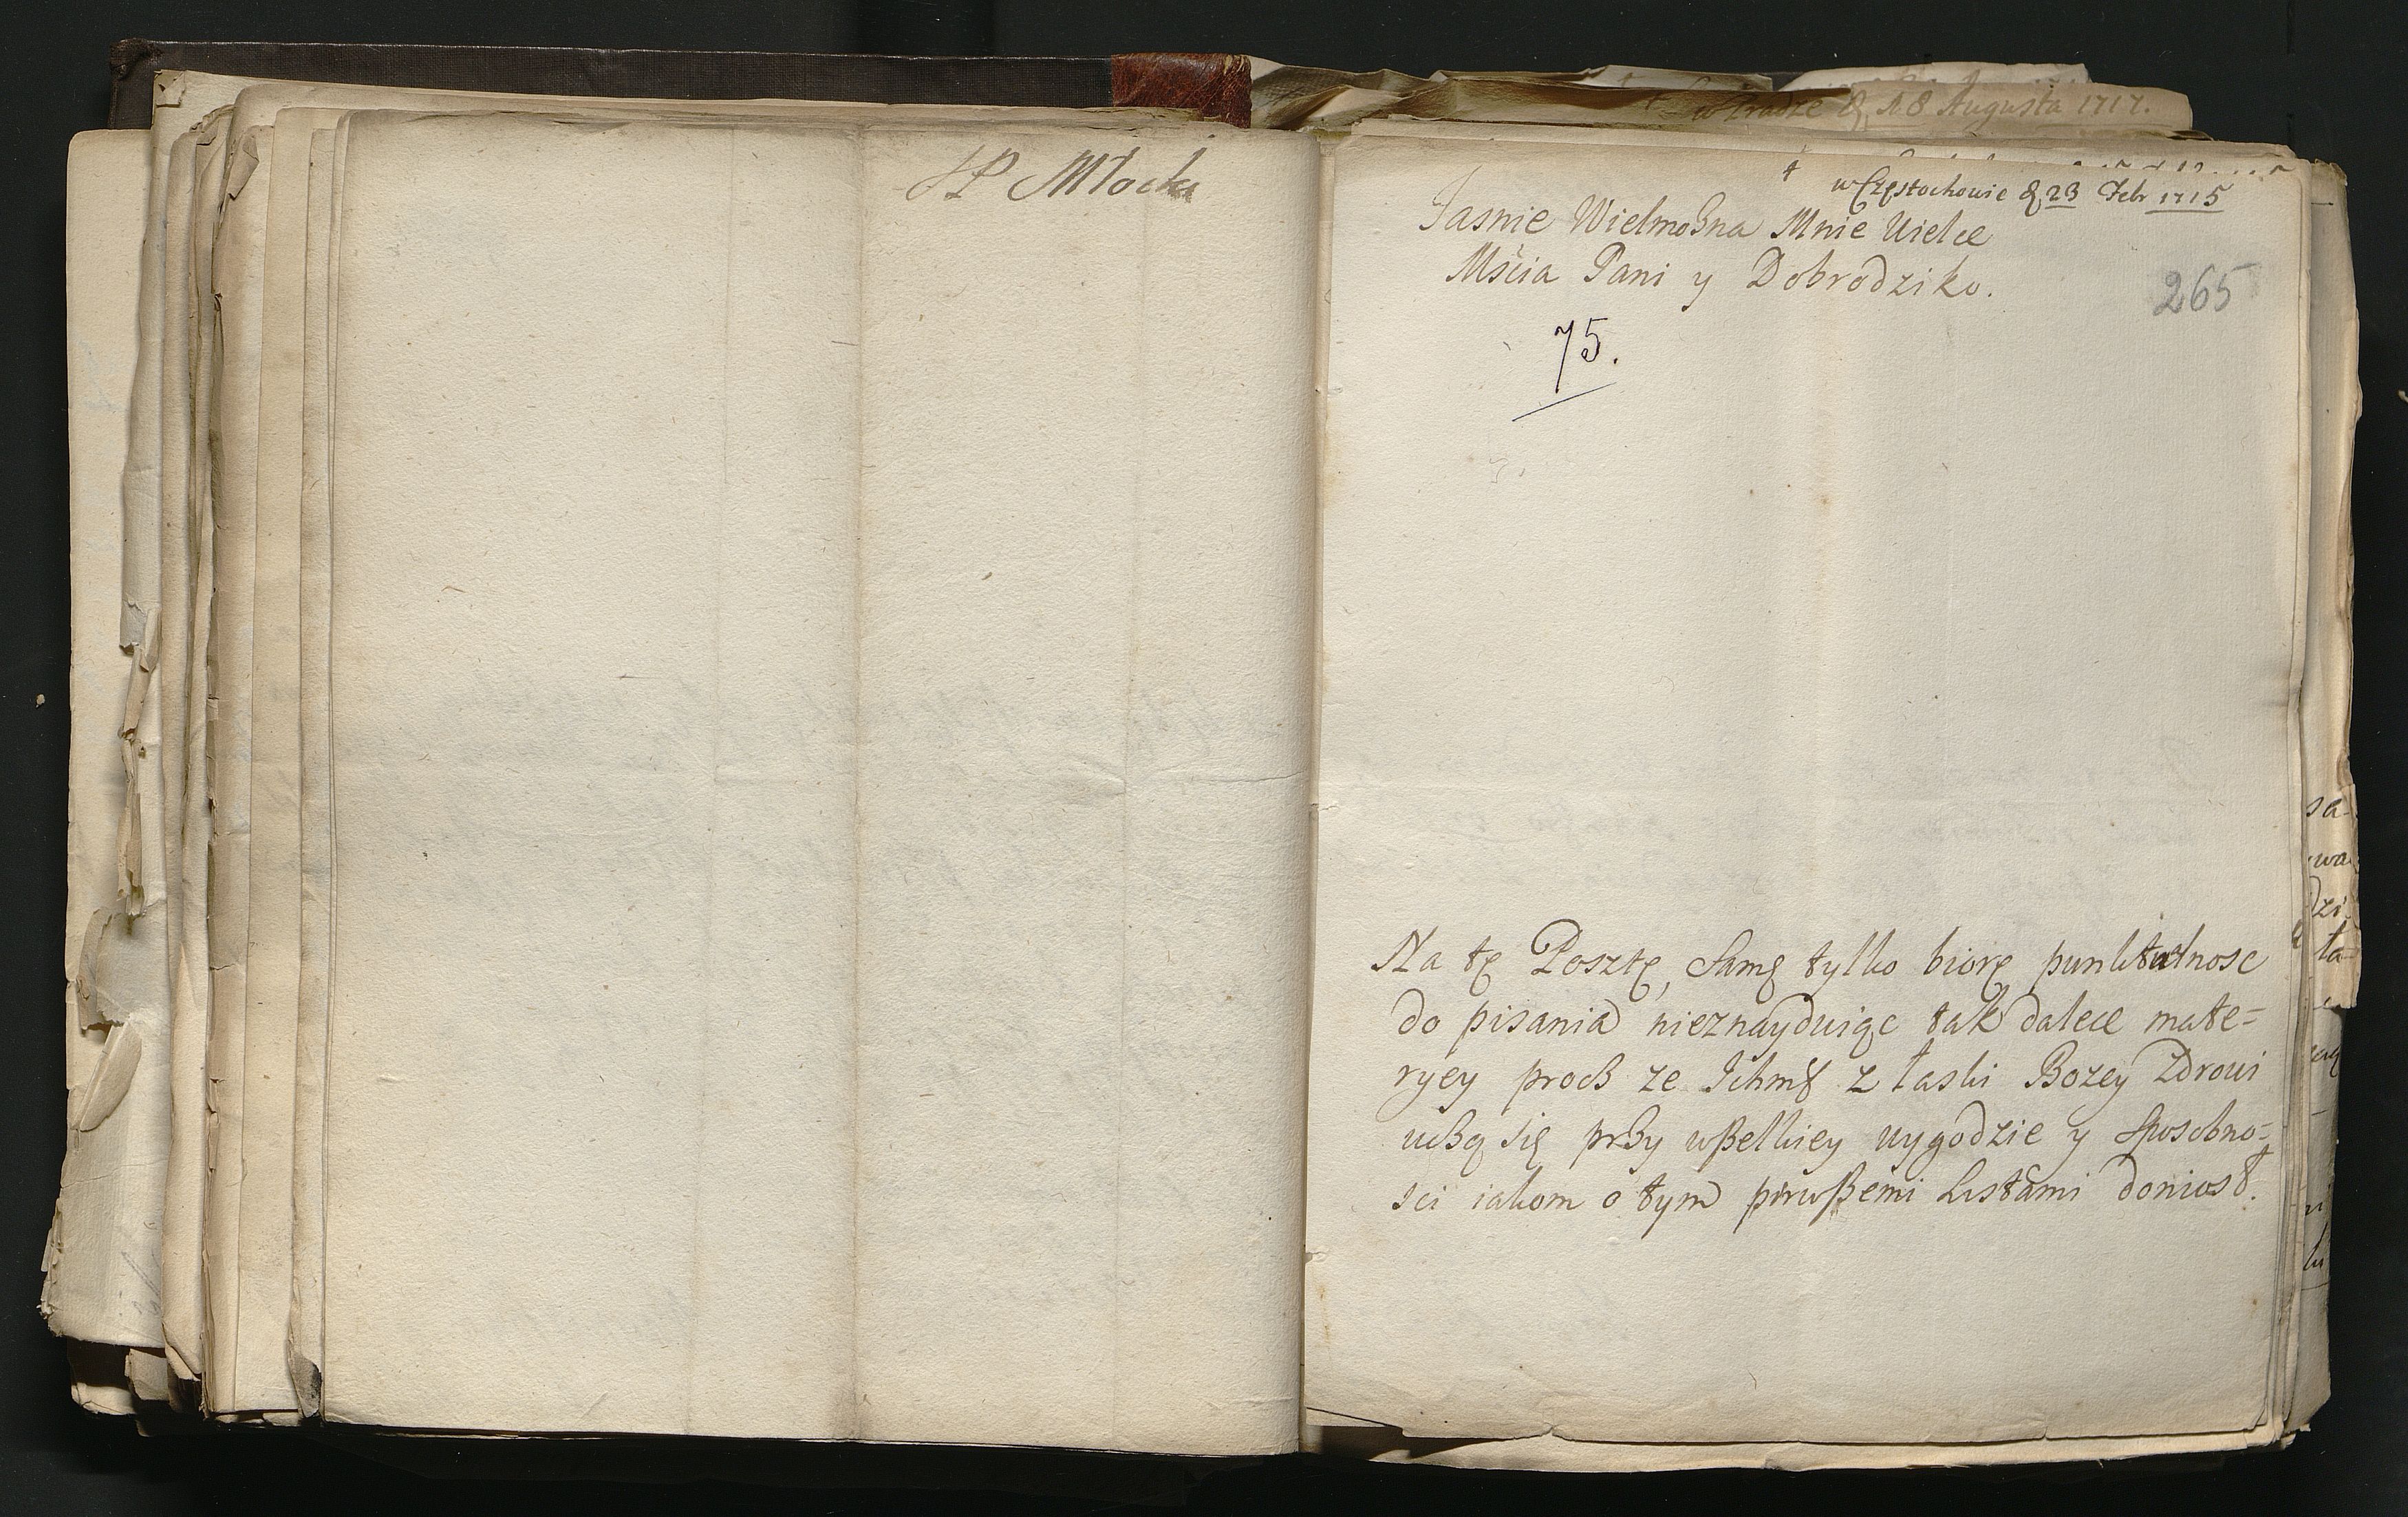 JP Młocki
w Pradze d. 18 Augusta 1717.
w Częstochowie d 23 Febr 1715
Jasnie Wielmożna Mnie Wielce
Mścia Pani y Dobrodziko.
265
75.
Na tę Posztę, samę tylko biorę punktualnosc
do pisania nieznayduiąc tak dalece mate=
ryey procz ze Ichmść z łaski Bozey Zdrowi
uczą się przy wszelkiey wygodzie y sposobno=
sci iakom o tym pirwszemi Listami doniosł.
sa-
wa
dzi
ła-